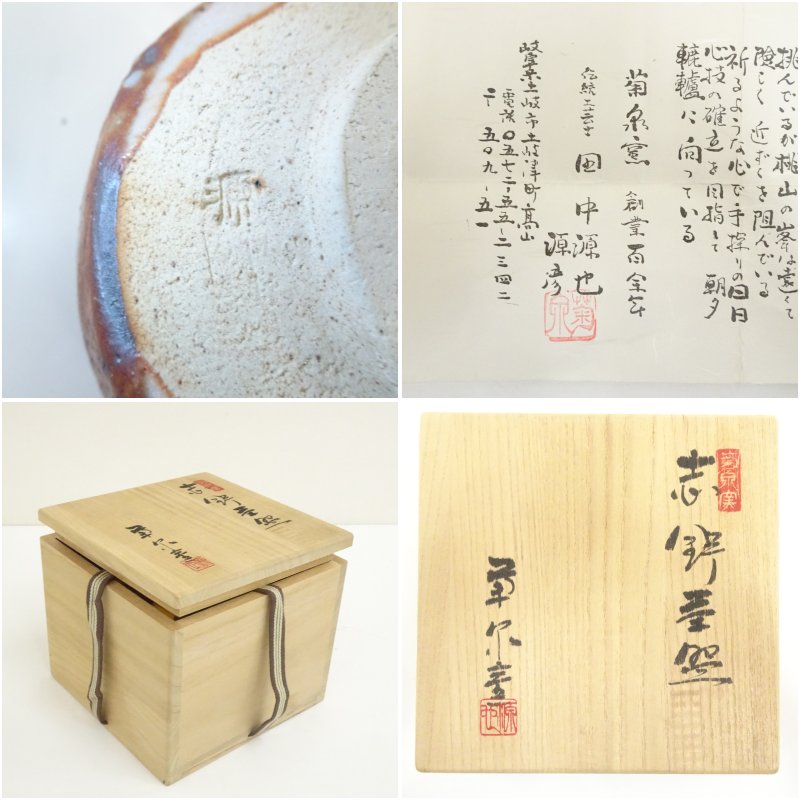 源
挑んでいるが桃山の峯は遠くて
険しく近ずくを阻んでいる
祈るような心で手探りの日日
心技の確立を目指して朝夕
轆轤に向っている
菊泉窯 創業百余年
伝統工芸士 田中源也
源彦
菊泉
岐阜県土岐市土岐津町高山
電話〇五七二-五五-二三四二
〒五〇九-五一
菊泉窯
志野茶碗
菊泉窯